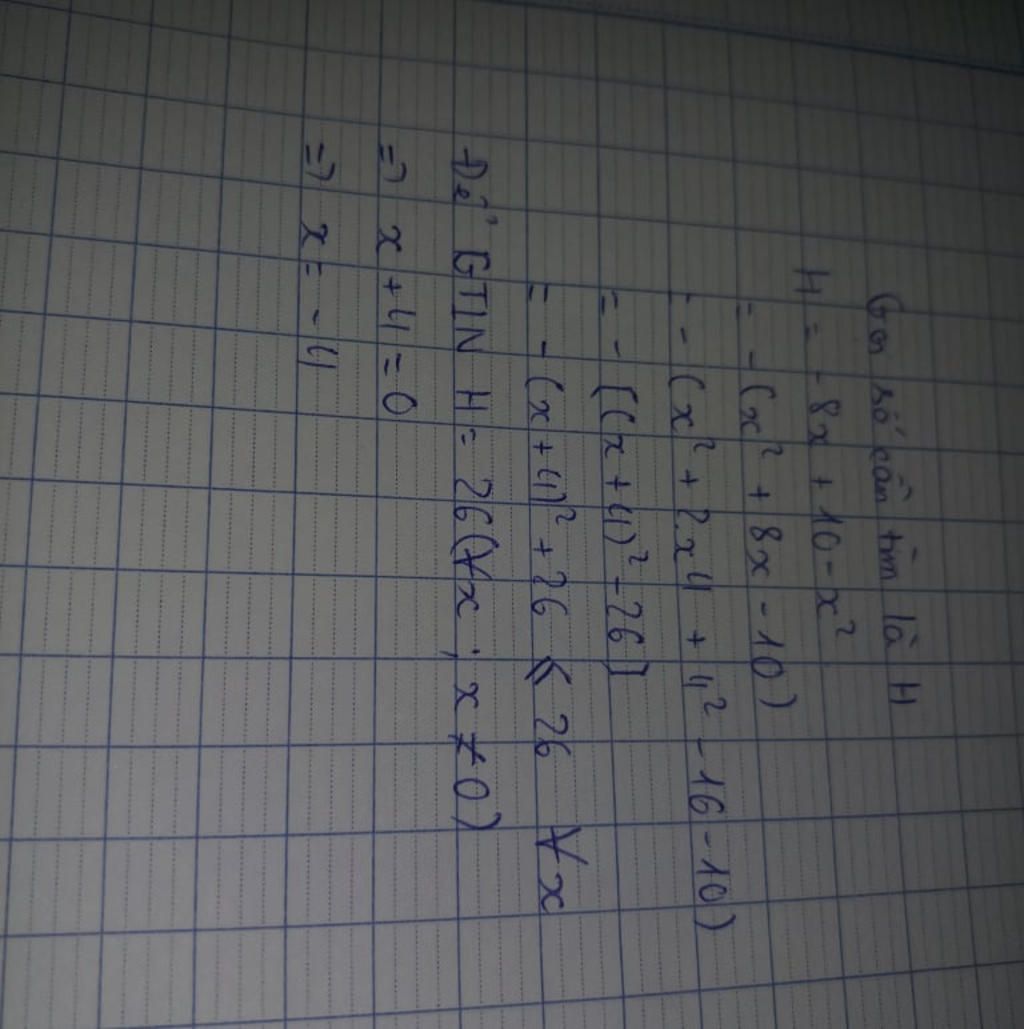 Gọi số cần tìm là H
H = - 8x + 10 - x²
= - (x² + 8x - 10)
= - (x² + 2.x4 + 4² - 16 - 10)
= - [(x + 4)² - 26]
= - (x + 4)² + 26 ≤ 26 ∀x
Để GTLN H = 26 (∀x ; x ≠ 0)
=> x + 4 = 0
=> x = - 4